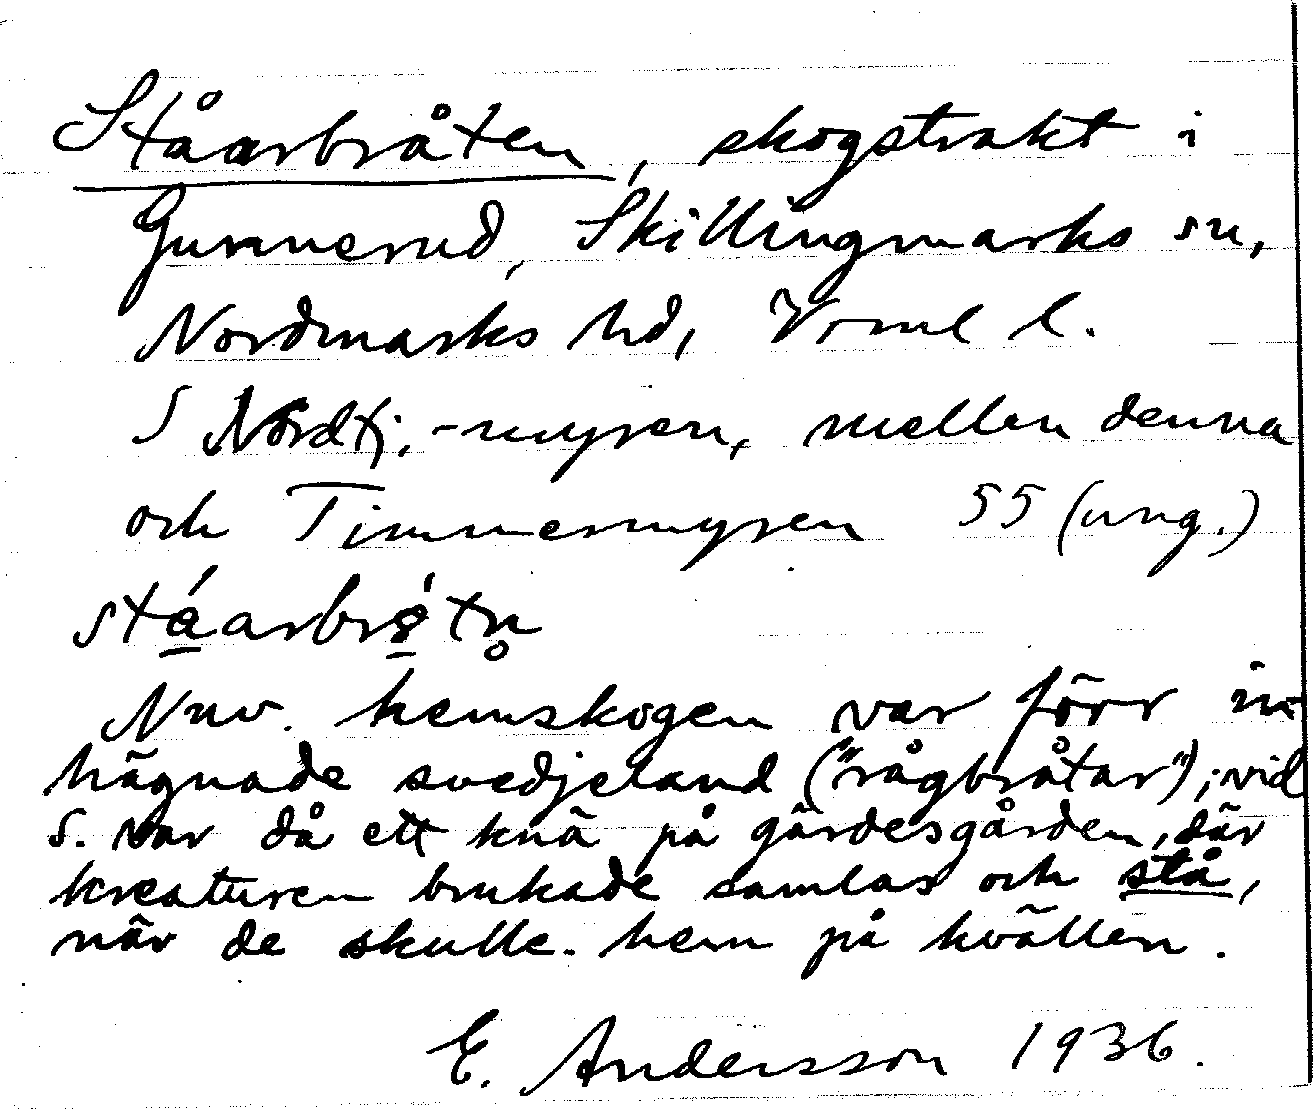 Ståarbråten, skogstrakt i
Gunnerud, Skillingmarks sn,
Nordmarks hd, Vrml l.
S Nordtj.-myren, mellan denna
och Timmermyren 55 (ung.)
Nuv. hemskogen var förr in-
hägnade svedjeland ("rågbråtar"); vid
S. var då ett knä på gärdesgården, där
kreaturen brukade samlas och stå,
när de skulle hem på kvällen.
E. Andersson 1936.